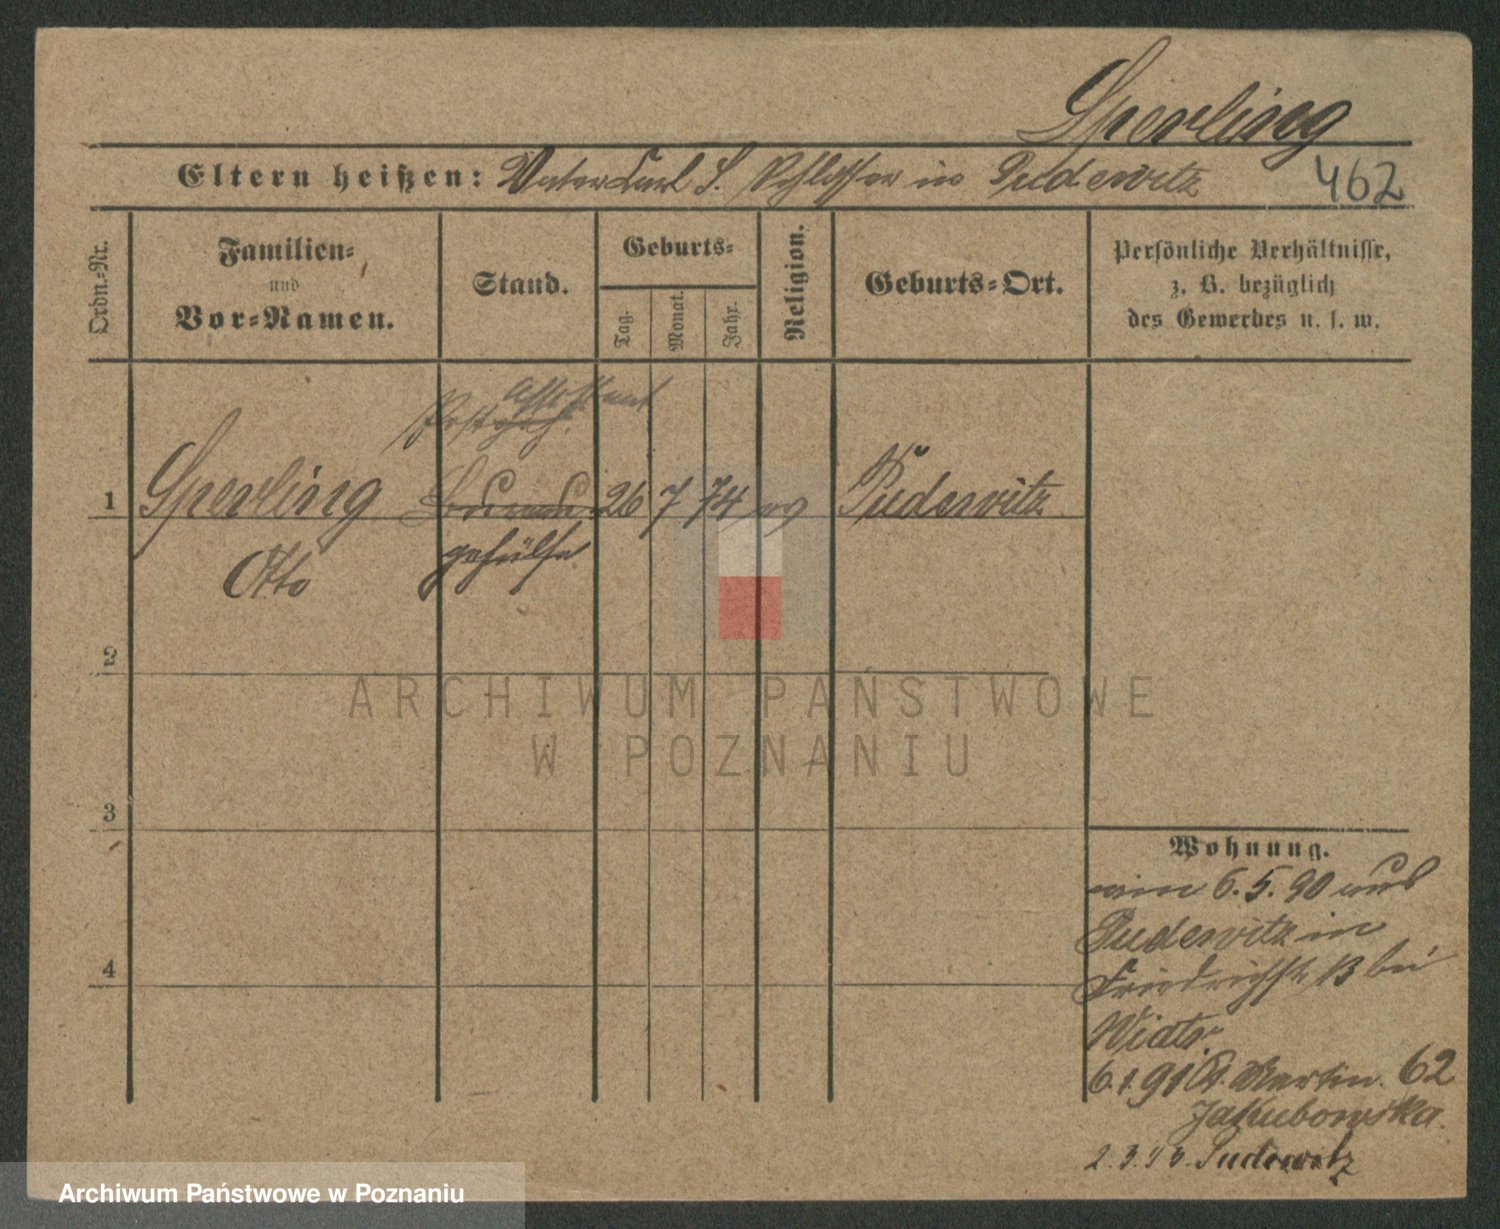 Sperling
Eltern heißen: Vater Carl S. Schlosser in Pudewitz
462
Ordn.-Nr.
Familien-
und
Vor-Namen.
Stand.
Geburts-
Tag.
Monat.
Jahr.
Religion.
Geburts-Ort.
Persönliche Verhältnisse,
z. B. bezüglich
des Gewerbes u. s. w.
Assistent
Postgeh.
1 Sperling 26 7 74 Pudewitz
Otto gehülfe
2
3
4
Wohnung.
am 6. 5. 90 aus
Pudewitz in
Friedrichstr. 13 bei
Widtr.
6. 1. 91 St. Martin. 62
Jakubowska.
2. 3. 93. Pudewitz
ARCHIWUM PAŃSTWOWE
W POZNANIU
Archiwum Państwowe w Poznaniu